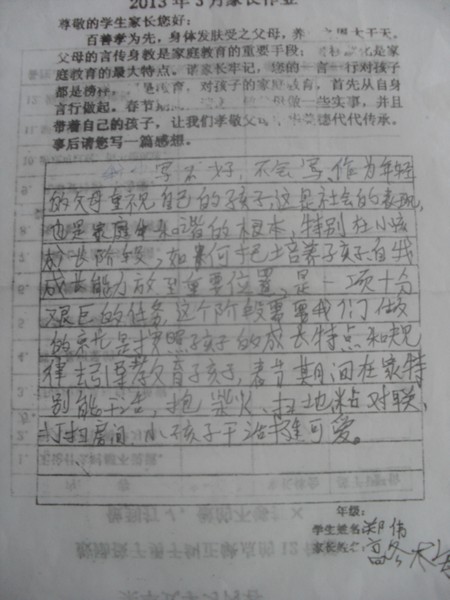 2013年3月家长作业
尊敬的学生家长您好:
百善孝为先,身体发肤受之父母,养 大于天,
父母的言传身教是家庭教育的重要手段; 是家
庭教育的最大特点。请家长牢记,您的一言一行对孩子
都是榜样, 教育,对孩子的家庭教育,首先从自身
言行做起。春节 做一些实事,并且
带着自己的孩子,让我们孝敬父 代代传承。
事后请您写一篇感想。
写不好,不会写,作为年轻
的父母重视自己的孩子,这是社会的表现,
也是家庭 和谐的根本,特别在小孩
成长阶段,如何把培养孩子自我
成长能力放到重要位置,是一项十分
艰巨的任务,这个阶段需要我们做
的就是按照孩子的成长特点和规
律去引导教育孩子,春节期间在家特
别能干活,抱柴火、扫地、粘对联、
打扫房间,小孩子干活 可爱。
年级:
学生姓名:郑伟
家长姓名: